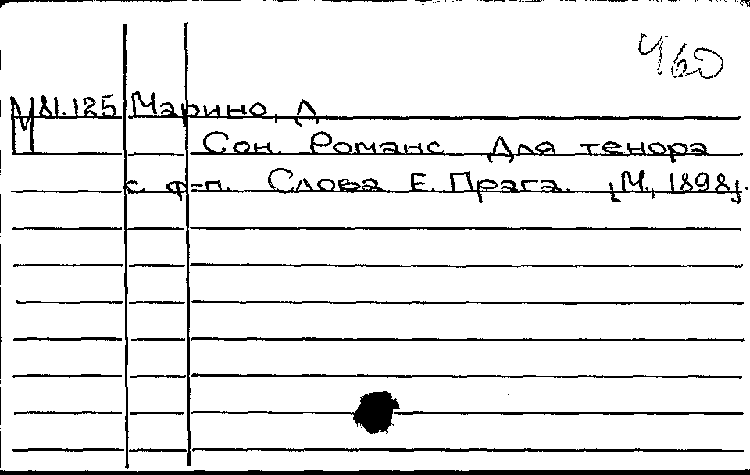 460
М81.125 Марино, Д
Сон. Романс Для тенора
с ф-п. Слова Е. Прага. [М., 1898].